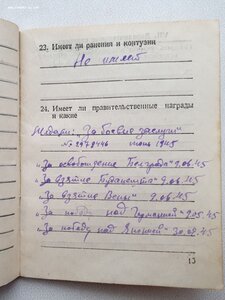 23. Имеет ли ранения и контузии
Не имеет
24. Имеет ли правительственные награды
и какие
Медали: „За боевые заслуги"
№ 2978446 июнь 1945
„За освобождение Белграда" 9.06.45
„За взятие Будапешта" 9.06.45
„За взятие Вены" 9.06.45
„За победу над Германией" 9.05.45
„За победу над Японией" 30.09.45
13